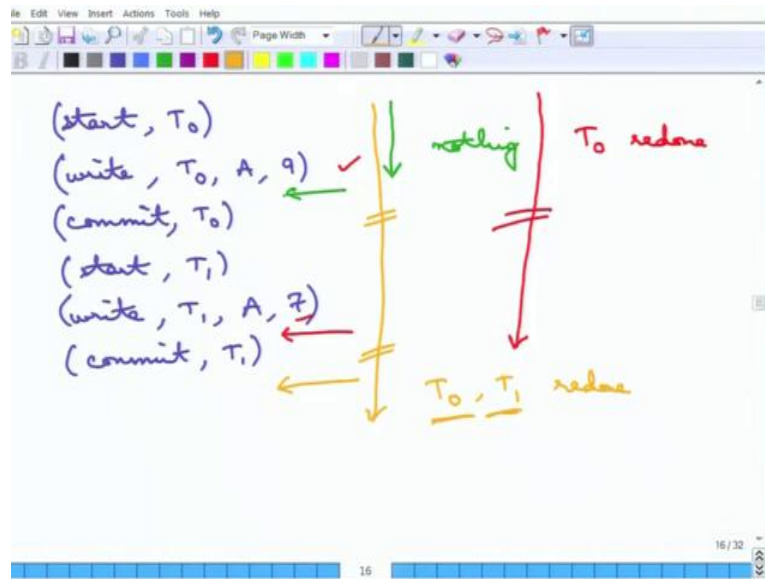 le Edit View Insert Actions Tools Help
Page Width
B I
(start, T0)
(write, T0, A, 9)
(commit, T0)
(start, T1)
(write, T1, A, 7)
(commit, T1)
nothing
T0 redone
T0, T1 redone
16/32
16